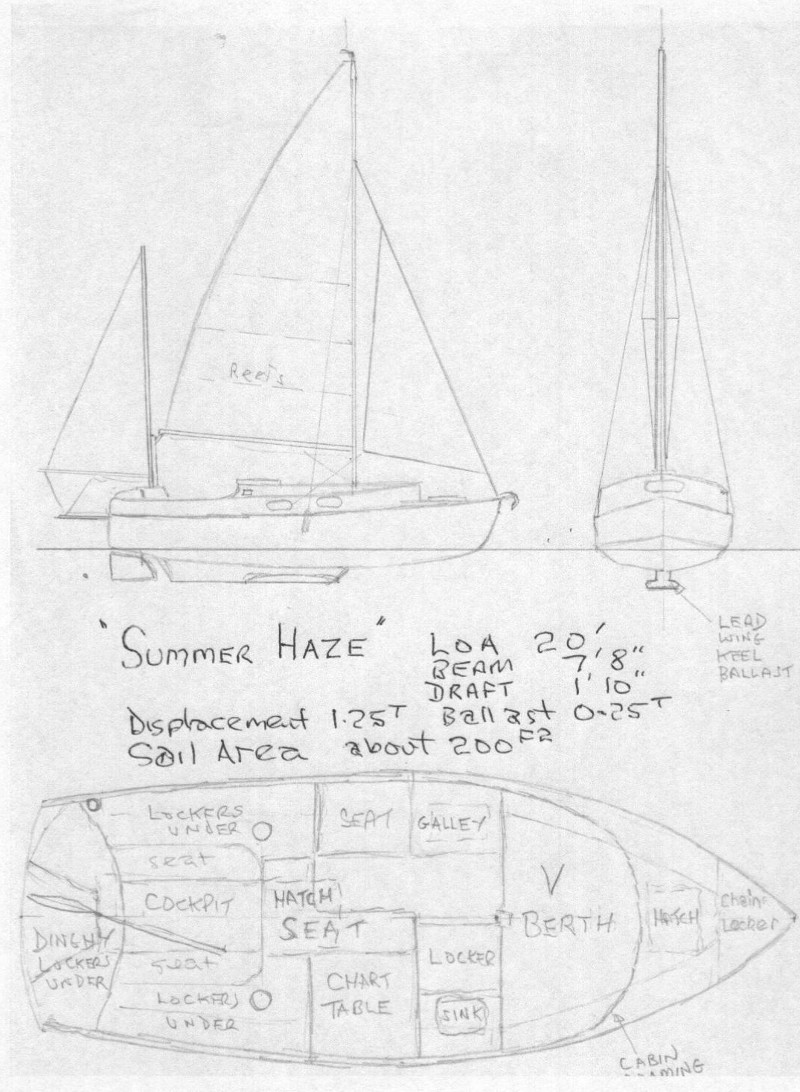 Reefs
LEAD
WING
KEEL
BALLAST
"SUMMER HAZE"
LOA 20'
BEAM 7'8"
DRAFT 1'10"
Displacement 1.25T Ballast 0.25T
Sail Area about 200F2
LOCKERS
UNDER
SEAT
GALLEY
seat
COCKPIT
HATCH
SEAT
V
BERTH
HATCH
Chain
Locker
DINGHY
LOCKERS
UNDER
seat
LOCKERS
UNDER
CHART
TABLE
LOCKER
SINK
CABIN